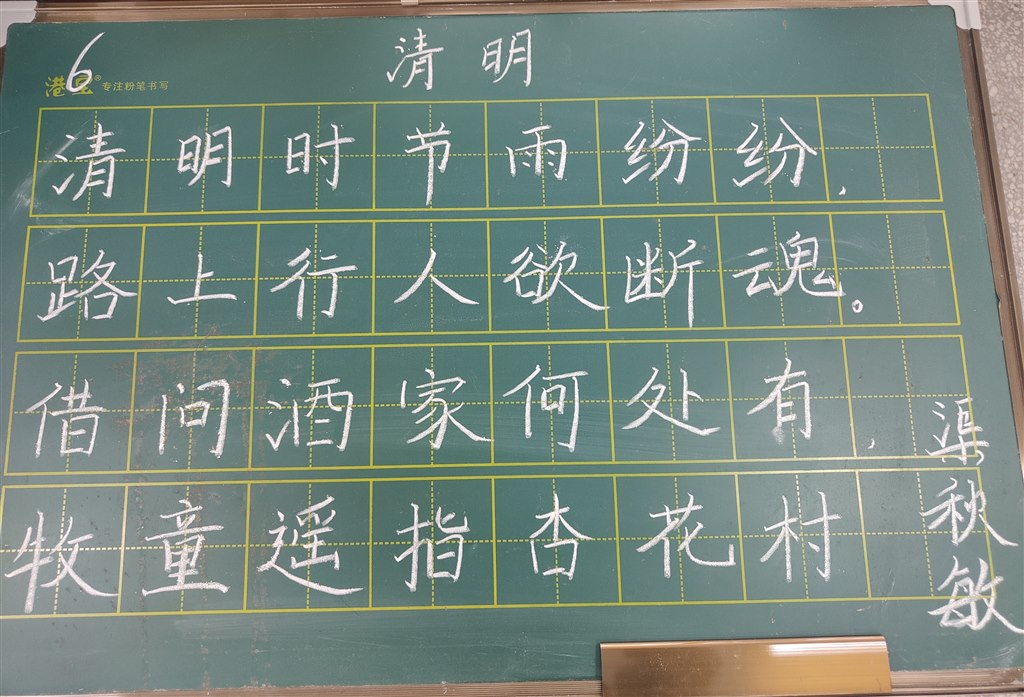 6
清明
专注粉笔书写
清明时节雨纷纷,
路上行人欲断魂。
借问酒家何处有,
牧童遥指杏花村
渠秋敏